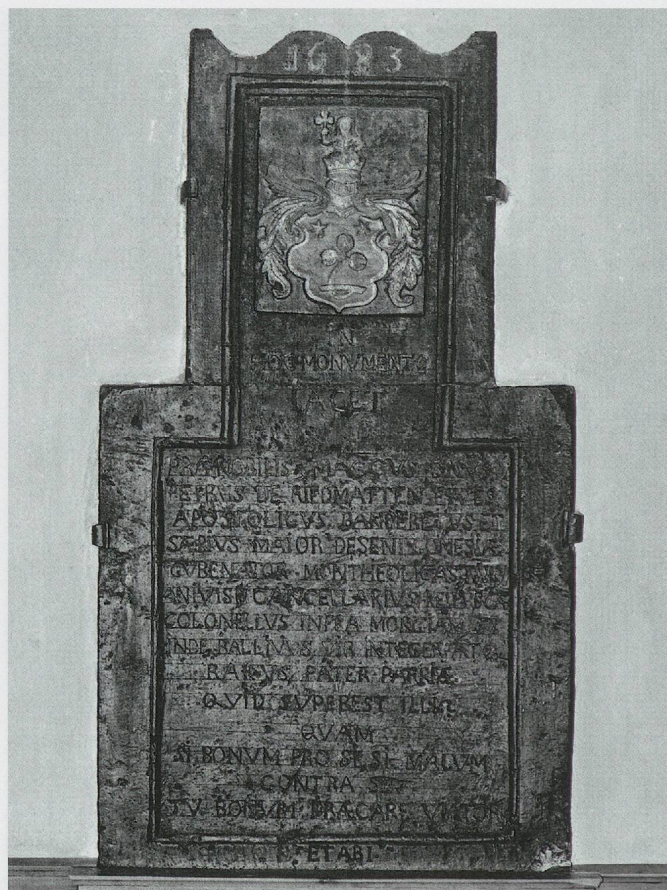 1683
IN
HOC MONVMENTO
IACET
PRÆNOBILIS MAG
PETRVS DE RIEDMATTEN
APOSTOLICVS BANDERETVS ET
SÆPIVS MAIOR DESENI
GVBERNATOR MONTHEOLI
ANIVISII CANCELLARIVS
COLONELLVS INFRA MORGIAM
INDE BALLIVVS VIR INTEGER AT
RARVS PATER PATRIÆ
QVID SVPEREST ILLI
QVAM
SI BONVM PRO SE SI MALVM
CONTRA SE
TV BONVM PRÆCARE VIATOR
ET ABI